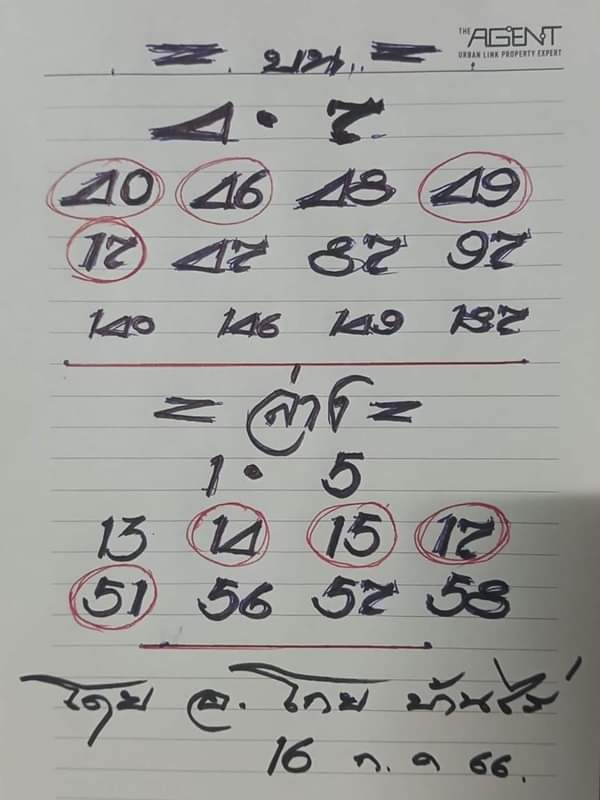 THE AGENT
URBAN LINK PROPERTY EXPERT
= บน =
4 • 7
40 46 48 49
17 47 87 97
140 146 149 187
= ล่าง =
1 • 5
13 14 15 17
51 56 57 58
โดย อ. ไกย บ้านไร่
16 ก. ค 66.